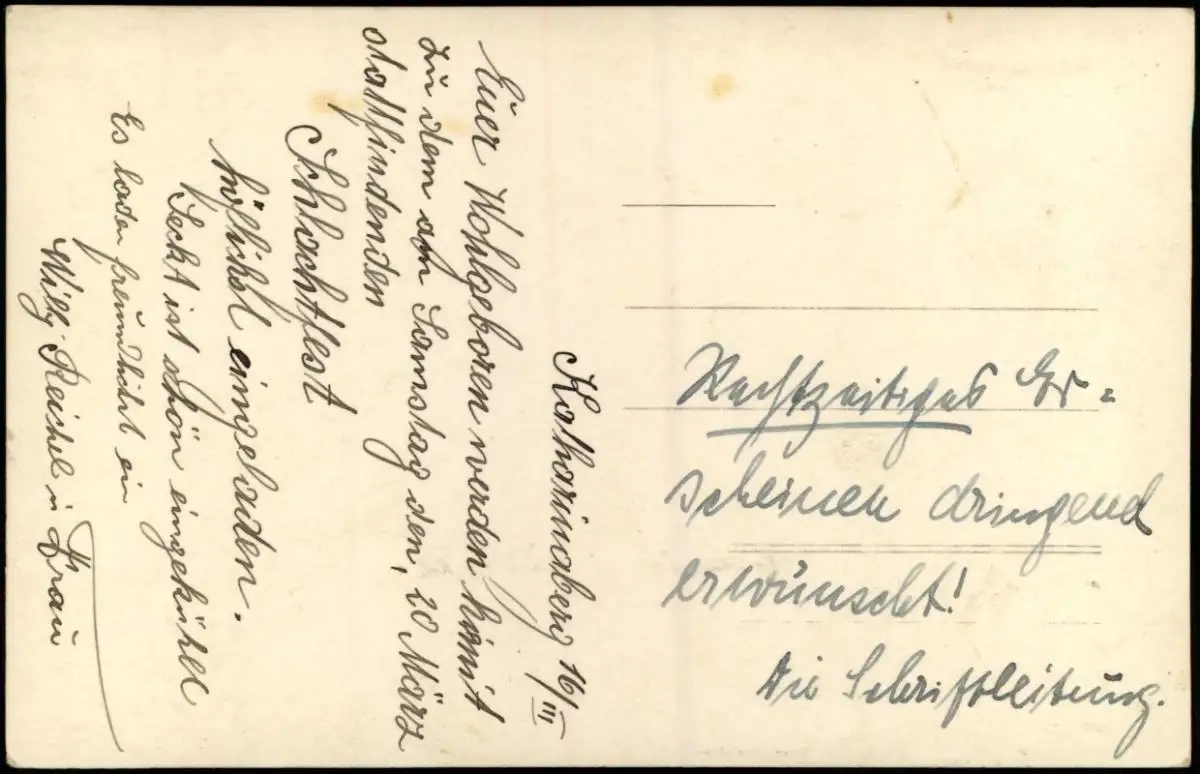 Katharinaberg 16/III
Euer Wohlgeboren werden hiermit
zu dem am Samstag den, 20 März
stattfindenden
Schlachtfest
höflichst eingeladen.
Seckt ist schon eingekühlt
Es laden freundlichst ein
Willy Reichel u Frau
Rechtzeitiges Er-
scheinen dringend
erwünscht!
Die Schriftleitung.